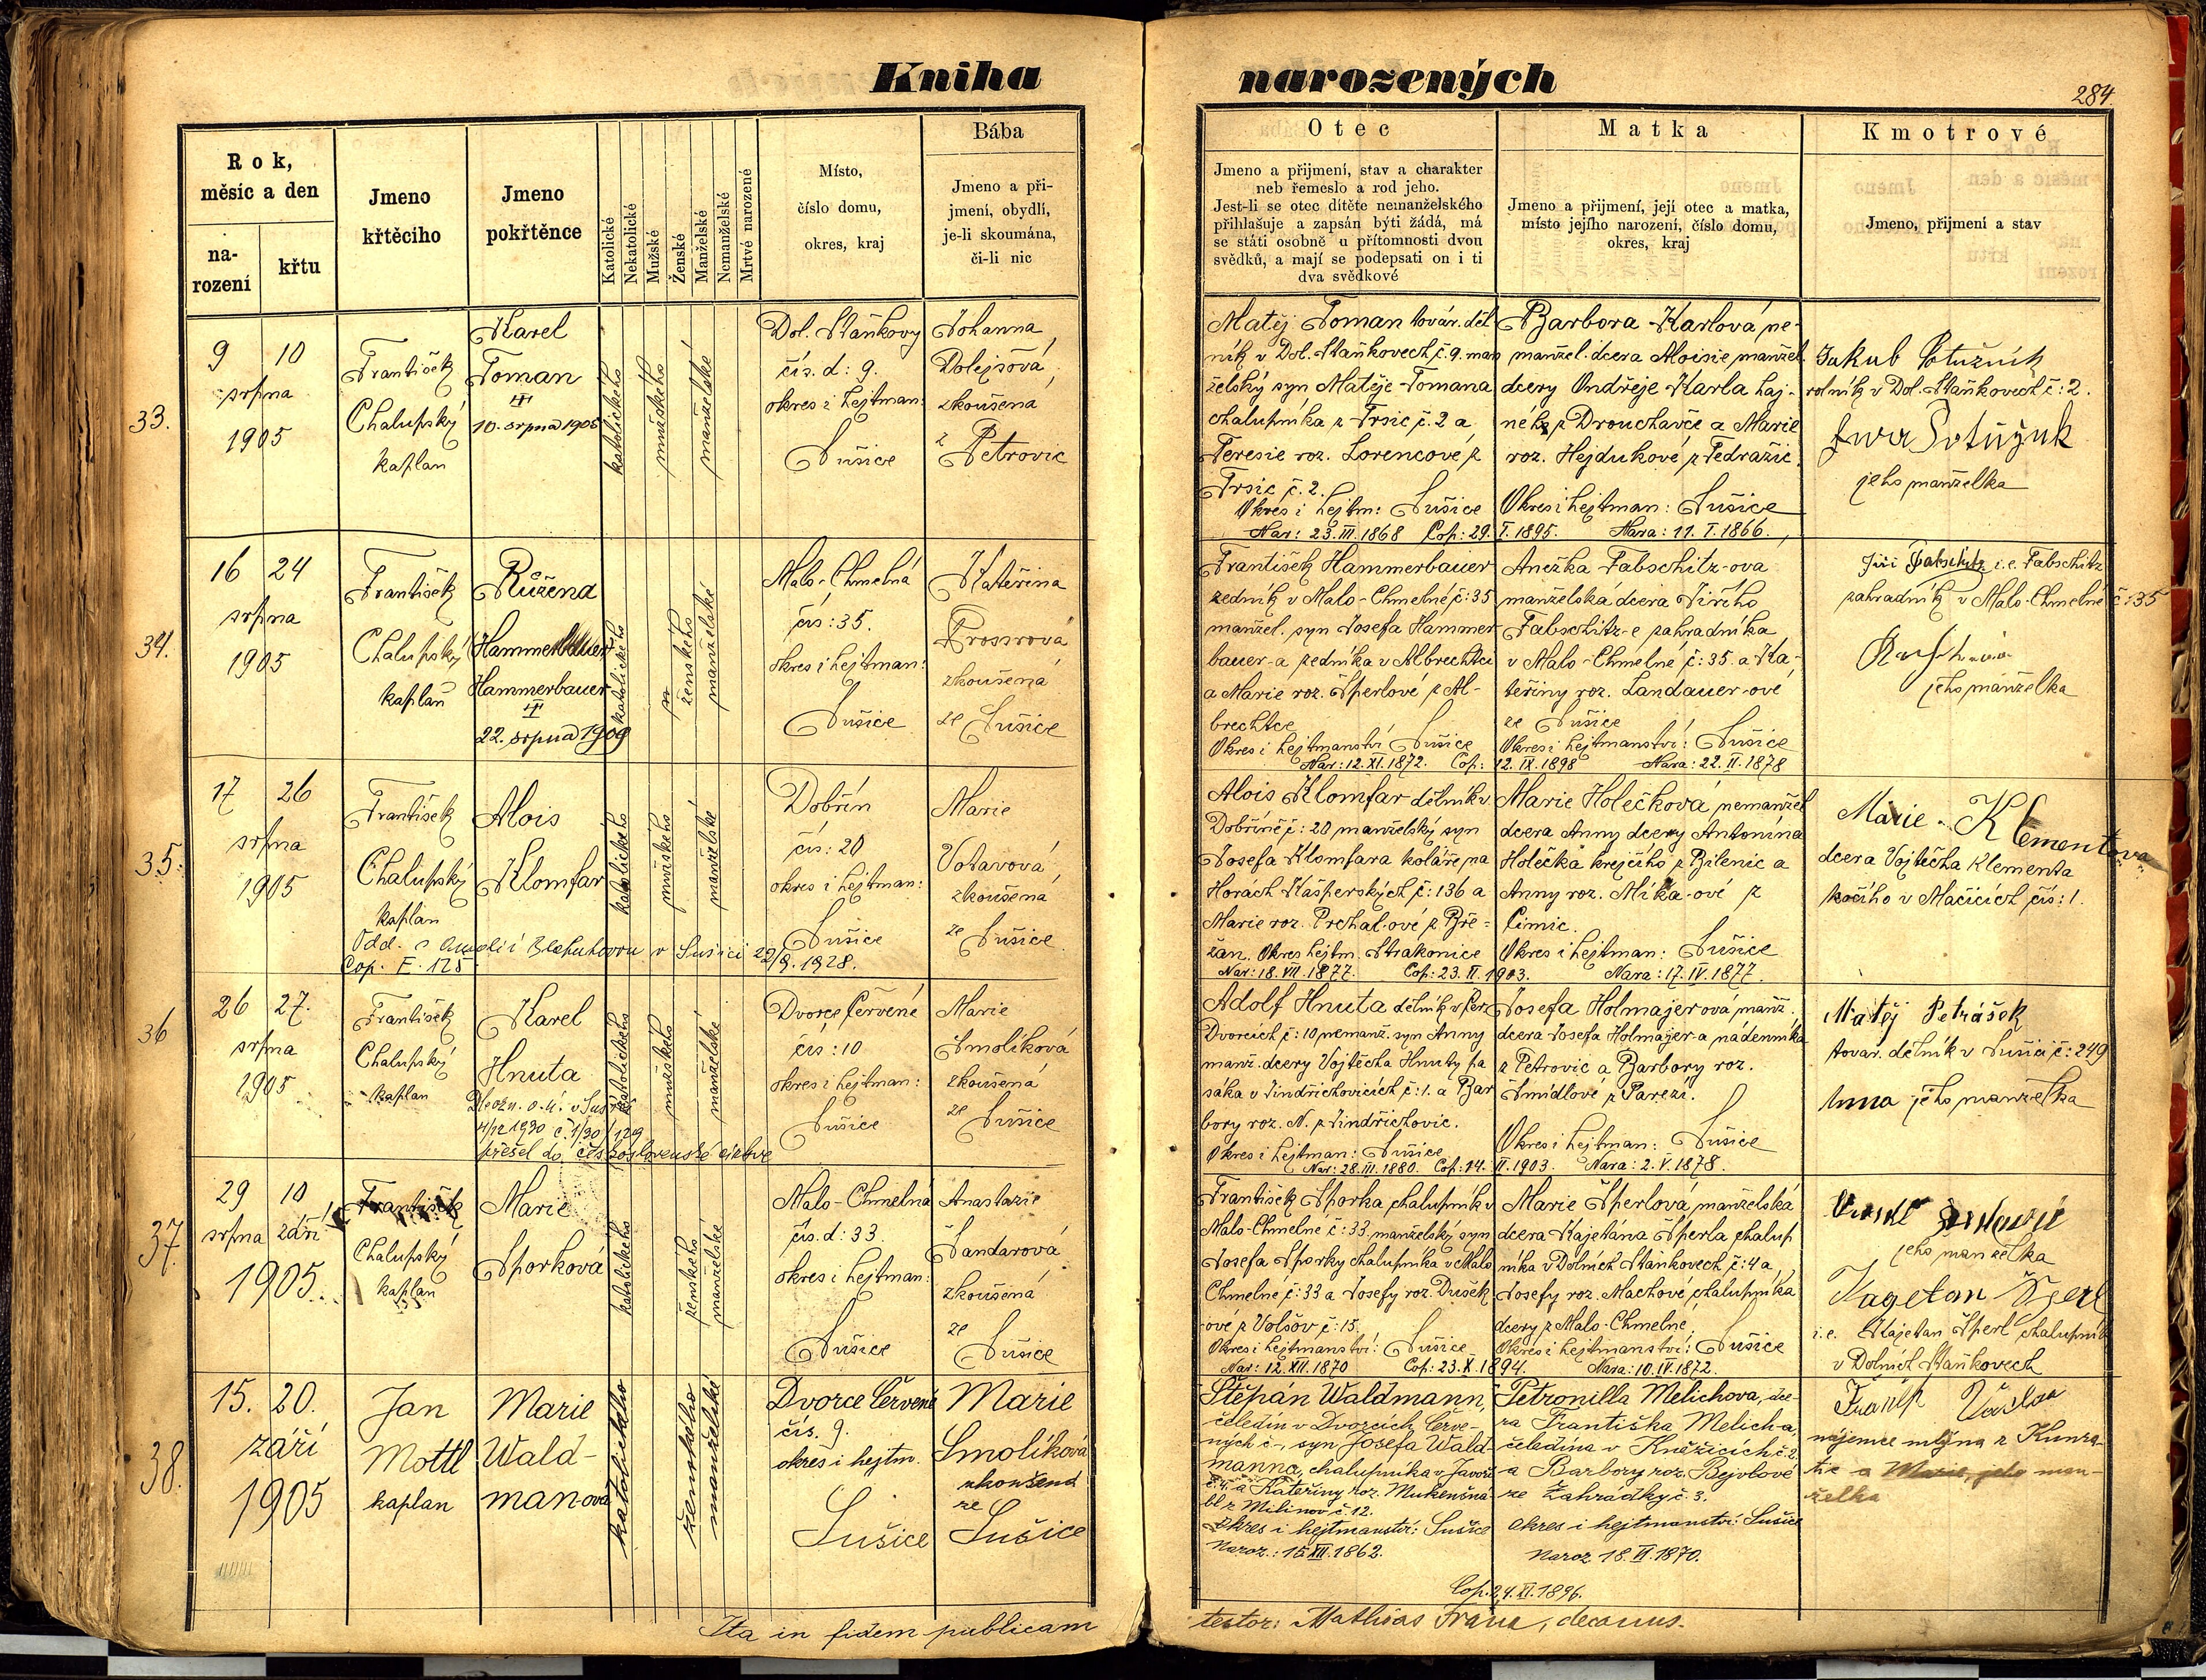 Kniha
narozených
284.
Rok,
měsíc a den
na-
rození
křtu
Jmeno
křtěciho
Jmeno
pokřtěnce
Katolické
Nekatolické
Mužské
Ženské
Manželské
Nemanželské
Mrtvé narozené
Místo,
číslo domu,
okres, kraj
Bába
Jmeno a při-
jmení, obydlí,
je-li skoumána,
či-li nic
Otec
Jmeno a přijmení, stav a charakter
neb řemeslo a rod jeho.
Jest-li se otec dítěte nemanželského
přihlašuje a zapsán býti žádá, má
se státi osobně u přítomnosti dvou
svědků, a mají se podepsati on i ti
dva svědkové
Matka
Jmeno a přijmení, její otec a matka,
místo jejího narození, číslo domu,
okres, kraj
Kmotrové
Jmeno, přijmení a stav
33.
9 10
srpna
1905
František
Chalupský
kaplan
Karel
Toman
10. srpna 1905
katolického
mužského
manželské
Dol. Staňkovy
čís. d: 9.
okres i hejtman:
Sušice
Johanna
Dolejšová
zkoušená
z
Petrovic
Matěj Toman továr. děl
ník v Dol. Staňkovech č. 9. man
želský syn Matěje Tomana
chalupníka z Trsic č. 2 a
Teresie roz. Lorencové z
Trsic č. 2.
Okres i hejtm: Sušice
Nar: 23. III. 1868 Cop: 29. I. 1895.
Barbora Karlová ne-
manžel. dcera Aloisie manžel.
dcery Ondřeje Karla haj-
ného z Drouchavče a Marie
roz. Hejdukové z Tedražic.
Okres i hejtman: Sušice
Nara: 11. I. 1866.
Jakub Potužník
rolník v Dol. Staňkovech č: 2.
jeho manželka
34.
16 24
srpna
1905
František
Chalupský
kaplan
Růžena
Hammerbauer
Hammerbauer
22. srpna 1909
katolického
ženského
manželské
Malo-Chmelná
čís: 35.
okres i hejtman:
Sušice
Kateřina
Prossrová
zkoušená
ze Sušice
František Hammerbauer
zedník v Malo-Chmelné č: 35
manžel. syn Josefa Hammer
bauer-a zedníka v Albrechtci
a Marie roz. Šperlové z Al-
brechtce
Okres i hejtmanství Sušice
Nar: 12. XI. 1872. Cop: 12. IX. 1898
Anežka Fabschitz-ova
manželská dcera Jiřího
Fabschitz-e zahradníka
v Malo-Chmelné č: 35. a Ka-
teřiny roz. Landauer-ové
ze Sušice
Okres i hejtmanství: Sušice
Nara: 22. II. 1878
Jiří Fabschitz i.e. Fabschitz
zahradník v Malo-Chmelné č: 35
jeho manželka
35.
17 26
srpna
1905
František
Chalupský
kaplan
Alois
Klomfar
Odd. s Amalií Blahutovou v Sušici 22/9. 1928.
Cop. F. 125
katolického
mužského
manželské
Dobřín
čís: 20
okres i hejtman:
Sušice
Marie
Votavová
zkoušená
ze Sušice
Alois Klomfar dělník v
Dobříně č: 20 manželský syn
Josefa Klomfara koláře na
Horách Kašperských č: 136 a
Marie roz. Prchal-ové z Bře-
žan. Okres hejtm. Strakonice
Nar: 18. VII. 1877. Cop: 23. II. 1903.
Marie Holečková nemanžel
dcera Anny dcery Antonína
Holečka krejčího z Bílenic a
Anny roz. Míka-ové z
Čimic.
Okres i hejtman: Sušice
Nara: 17. IV. 1877.
Marie Klementova
dcera Vojtěcha Klementa
kočího v Mačicích čís: 1.
36
26 27.
srpna
1905
František
Chalupský
kaplan
Karel
Hnuta
Dle ozn. o. ú. v Sušici
přešel do československé církve
katolického
mužského
manželské
Dvorce Červené
čís: 10
okres i hejtman:
Sušice
Marie
Smolíková
zkoušená
ze
Sušice
Adolf Hnuta dělník v Čer.
Dvorcích č: 10 nemanž. syn Anny
manž. dcery Vojtěcha Hnuty pa
sáka v Jindřichovicích č: 1. a Bar
bory roz. N. z Jindřichovic.
Okres i hejtman: Sušice
Nar: 28. III. 1880. Cop: 14. II. 1903.
Josefa Holmajerová manž.
dcera Josefa Holmajer-a nádenníka
z Petrovic a Barbory roz.
Šmídlové z Pařezí.
Okres i hejtman: Sušice
Nara: 2. V. 1878.
Matěj Petrášek
továr. dělník v Sušici č: 249
Anna jeho manželka
37.
29 10
srpna září
1905.
František
Chalupský
kaplan
Marie
Sporková
katolického
ženského
manželské
Malo-Chmelná
čís. d: 33.
okres i hejtman:
Sušice
Anastazie
Šandarová
zkoušená
ze
Sušice
František Sporka chalupník v
Malo-Chmelné č: 33. manželský syn
Josefa Sporky chalupníka v Malo
Chmelné č: 33 a Josefy roz. Dušek
ové z Volšov č: 15.
Okres i hejtmanství: Sušice
Nar: 12. XII. 1870 Cop: 23. X. 1894.
Marie Šperlová manželská
dcera Kajetána Šperla chalup
níka v Dolních Staňkovech č: 4 a
Josefy roz. Machové chalupníka
dcery z Malo-Chmelné
Okres i hejtmanství: Sušice
Nara: 10. IV. 1872.
jeho manželka
Kagetan Šperl
i.e. Kajetan Šperl chalupník
v Dolních Staňkovech
38.
15. 20.
září
1905
Jan
Mottl
kaplan
Marie
Wald-
man-ová
katolického
ženského
manželské
Dvorce Červené
čís. 9.
okres i hejtm.
Sušice
Marie
Smolíková
zkoušená
ze
Sušice
Štěpán Waldmann,
čeledín v Dvorcích Červe-
ných č-, syn Josefa Wald-
manna, chalupníka v Javoří
č. 4. a Kateřiny roz. Mukenšná-
bl z Milínov č. 12.
okres i hejtmanství: Sušice
Naroz.: 15. XII. 1862.
Petronilla Melichova, dce-
ra Františka Melich-a,
čeledína v Kněžicích č. 2.
a Barbory roz. Bejvlové
ze Zahrádky č. 3.
okres i hejtmanství: Sušice
Naroz. 18. VI. 1870.
Cop. 24. XI. 1896.
nájemce mlýna z Kunra-
tic a Marie, jeho man-
želka
Ita in fidem publicam
testor: Mathias Frana, decanus.